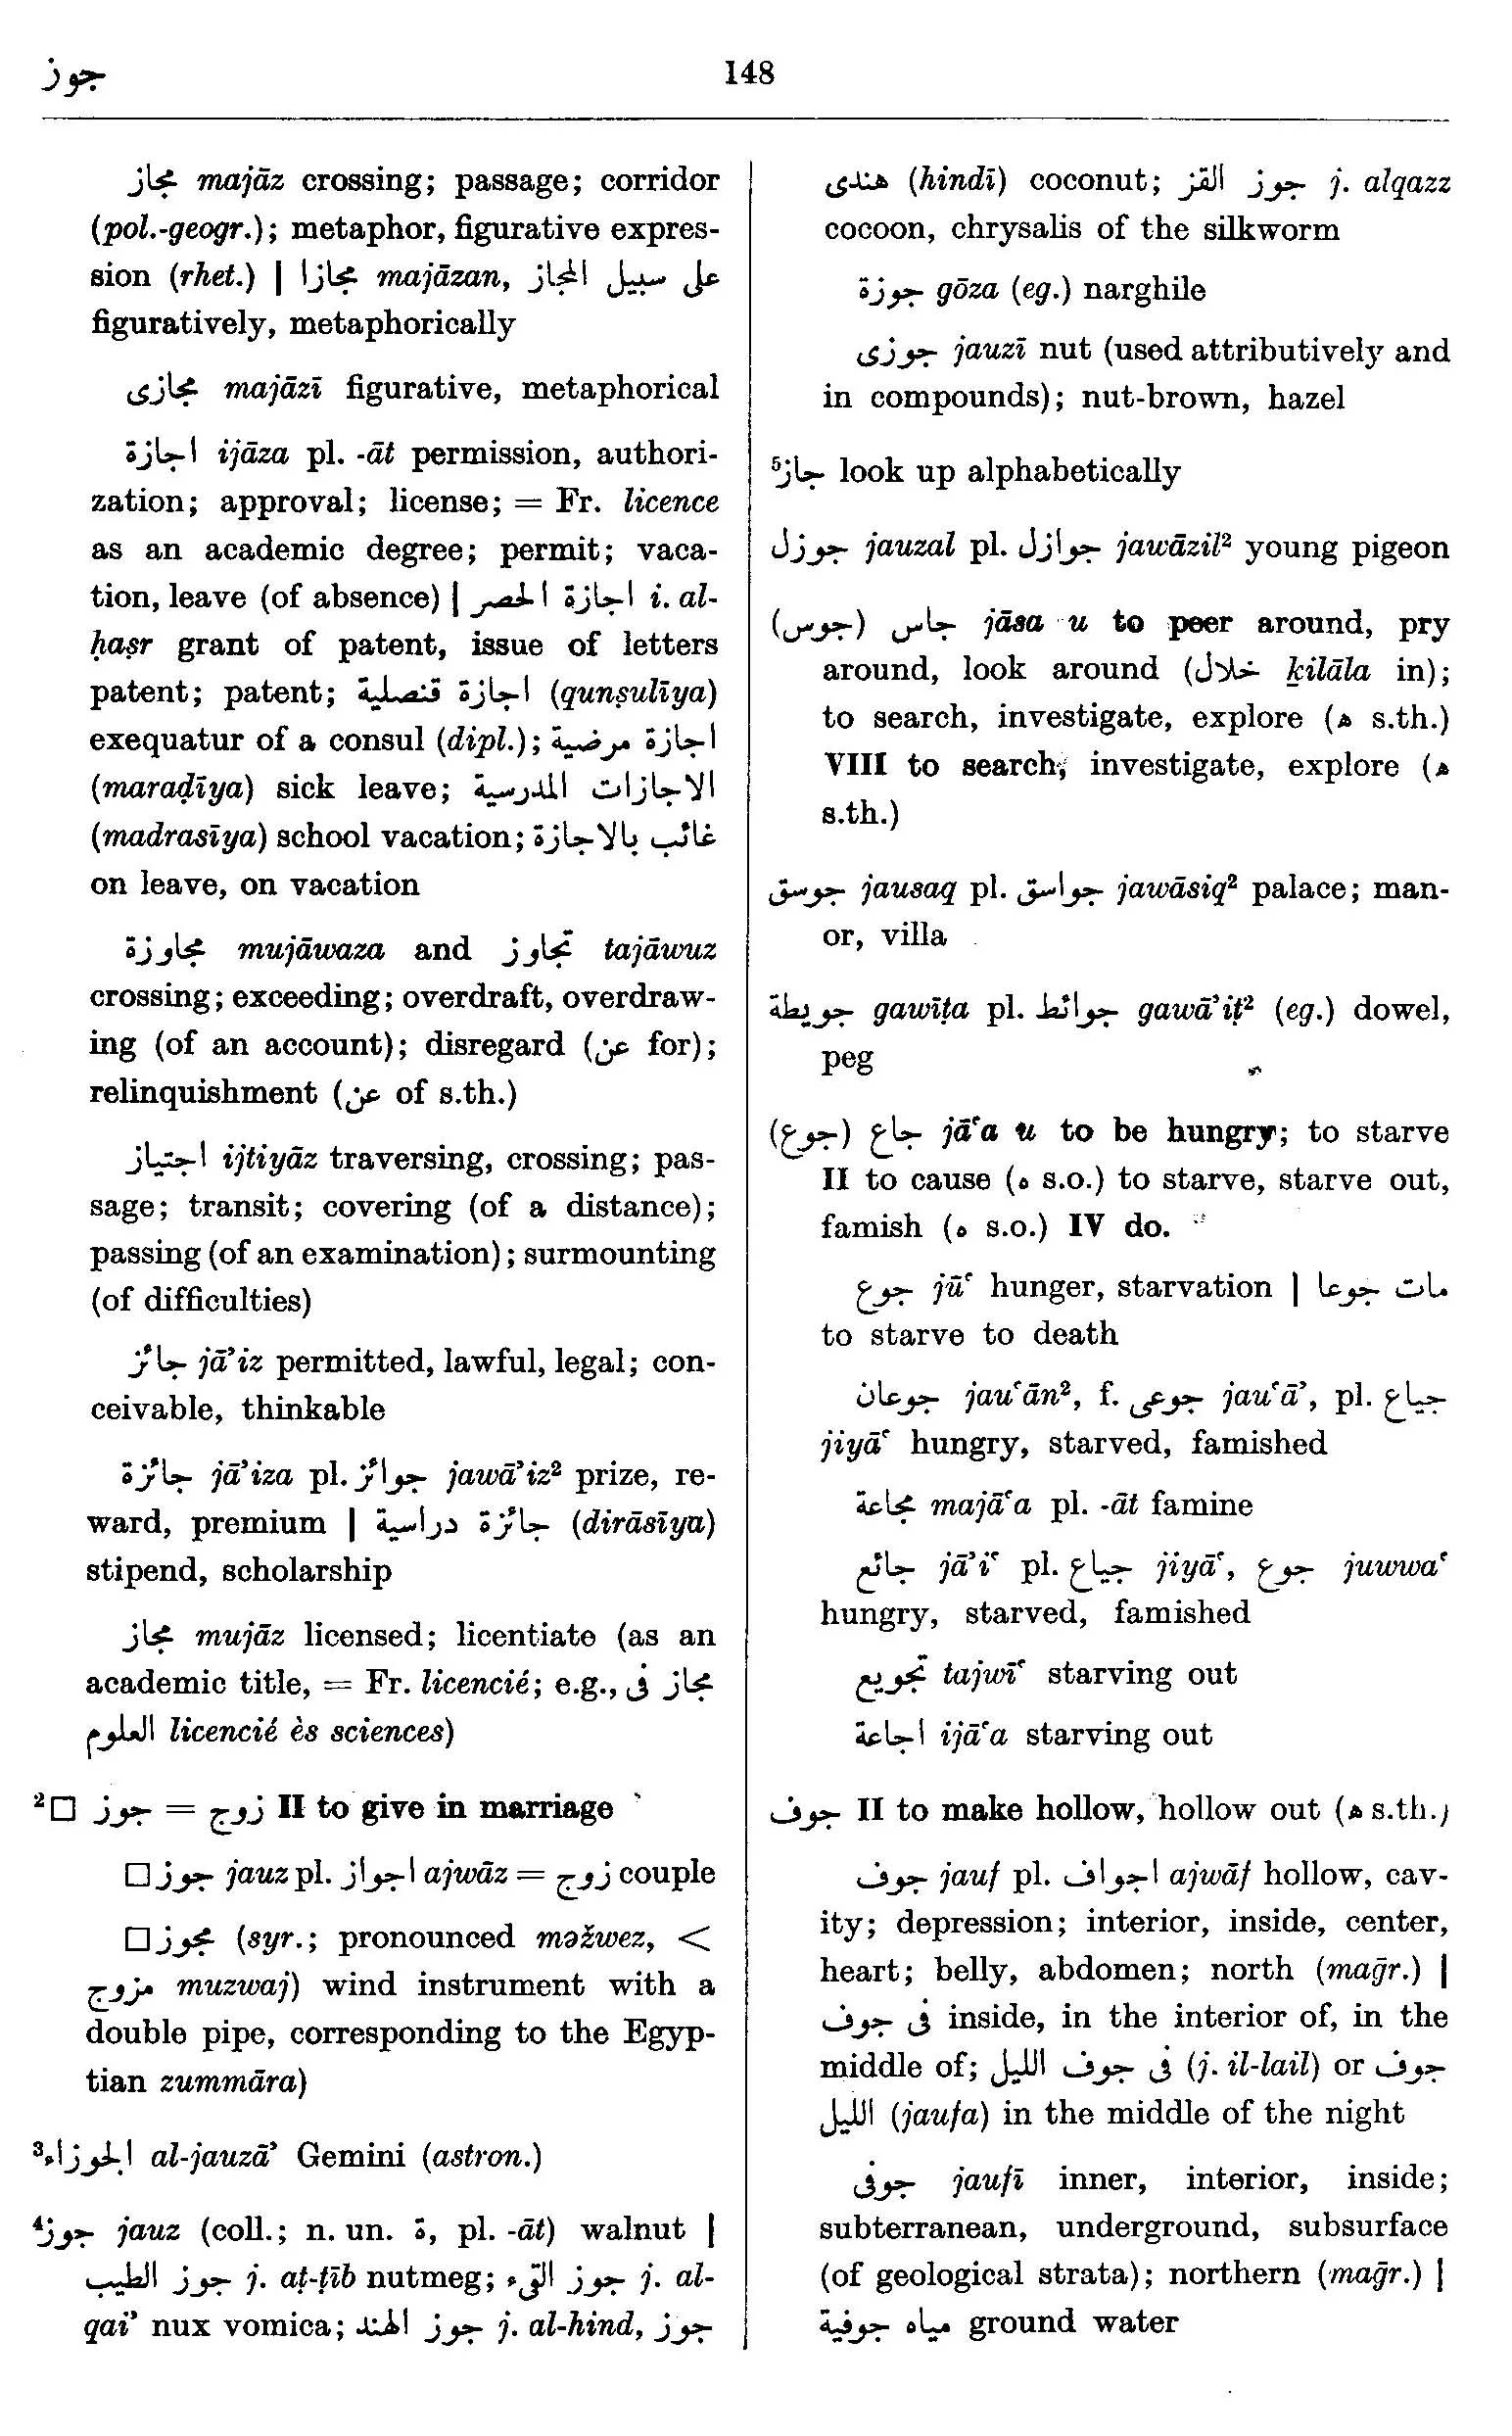 جوز
148
مجاز majāz crossing; passage; corridor
(pol.-geogr.); metaphor, figurative expres-
sion (rhet.) | مجازا majāzan, على سبيل المجاز
figuratively, metaphorically
مجازى majāzī figurative, metaphorical
اجازة ijāza pl. -āt permission, authori-
zation; approval; license; = Fr. licence
as an academic degree; permit; vaca-
tion, leave (of absence) | اجازة الحصر i. al-
ḥaṣr grant of patent, issue of letters
patent; patent; اجازة قنصلية (qunṣulīya)
exequatur of a consul (dipl.); اجازة مرضية
(maraḍīya) sick leave; الاجازات المدرسية
(madrasīya) school vacation; غائب بالاجازة
on leave, on vacation
مجاوزة mujāwaza and تجاوز tajāwuz
crossing; exceeding; overdraft, overdraw-
ing (of an account); disregard (عن for);
relinquishment (عن of s.th.)
اجتياز ijtiyāz traversing, crossing; pas-
sage; transit; covering (of a distance);
passing (of an examination); surmounting
(of difficulties)
جائز jā’iz permitted, lawful, legal; con-
ceivable, thinkable
جائزة jā’iza pl. جوائز jawā’iz² prize, re-
ward, premium | جائزة دراسية (dirāsīya)
stipend, scholarship
مجاز mujāz licensed; licentiate (as an
academic title, = Fr. licencié; e.g., مجاز فى
العلوم licencié ès sciences)
²□ جوز = زوج II to give in marriage
□ جوز jauz pl. اجواز ajwāz = زوج couple
□ مجوز (syr.; pronounced məžwez, <
مزوج muzwaj) wind instrument with a
double pipe, corresponding to the Egyp-
tian zummāra)
³الجوزاء al-jauzā’ Gemini (astron.)
⁴جوز jauz (coll.; n. un. ة, pl. -āt) walnut |
جوز الطيب j. aṭ-ṭīb nutmeg; جوز القىء j. al-
qai’ nux vomica; جوز الهند j. al-hind, جوز
هندى (hindī) coconut; جوز القز j. alqazz
cocoon, chrysalis of the silkworm
جوزة gōza (eg.) narghile
جوزى jauzī nut (used attributively and
in compounds); nut-brown, hazel
⁵جاز look up alphabetically
جوزل jauzal pl. جوازل jawāzil² young pigeon
(جوس) جاس jāsa u to peer around, pry
around, look around (خلال ḵilāla in);
to search, investigate, explore (ه s.th.)
VIII to search, investigate, explore (ه
s.th.)
جوسق jausaq pl. جواسق jawāsiq² palace; man-
or, villa
جويطة gawīṭa pl. جوائط gawā’iṭ² (eg.) dowel,
peg
(جوع) جاع jā‘a u to be hungry; to starve
II to cause (ه s.o.) to starve, starve out,
famish (ه s.o.) IV do.
جوع jū‘ hunger, starvation | مات جوعا
to starve to death
جوعان jau‘ān², f. جوعى jau‘ā’, pl. جياع
jiyā‘ hungry, starved, famished
مجاعة majā‘a pl. -āt famine
جائع jā’i‘ pl. جياع jiyā‘, جوع juwwa‘
hungry, starved, famished
تجويع tajwī‘ starving out
اجاعة ijā‘a starving out
جوف II to make hollow, hollow out (ه s.th.)
جوف jauf pl. اجواف ajwāf hollow, cav-
ity; depression; interior, inside, center,
heart; belly, abdomen; north (maḡr.) |
فى جوف inside, in the interior of, in the
middle of; فى جوف الليل (j. il-lail) or جوف
الليل (jaufa) in the middle of the night
جوفى jaufī inner, interior, inside;
subterranean, underground, subsurface
(of geological strata); northern (maḡr.) |
مياه جوفية ground water